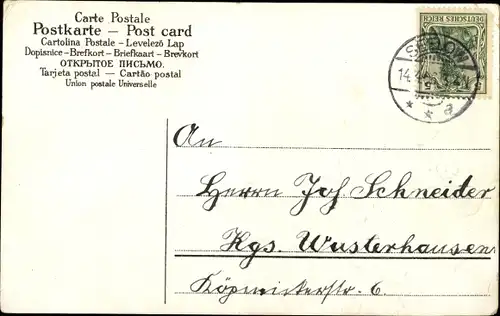 Carte Postale
Postkarte — Post card
Cartolina Postale – Levelező Lap
Dopisnice – Brefkort – Briefkaart – Brevkort
ОТКРЫТОЕ ПИСЬМО.
Tarjeta postal — Cartão postal
Union postale Universelle
DEUTSCHES REICH
5
14.
* * a
An
Herrn Joh Schneider
Kgs. Wusterhausen
Köpenickerstr. 6.